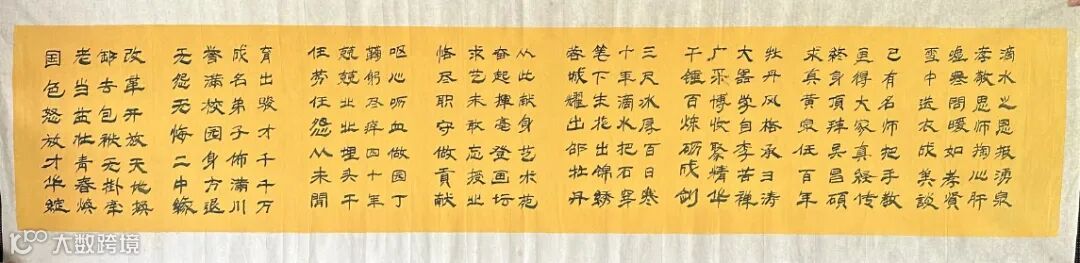 滴水之恩报湧泉
孝敬恩师掏心肝
嘘寒問暖如孝
雪中送衣成美談
已有名师把手教
画得大家真经传
終身項拜吳昌碩
求真黄泉任百年
牡丹风格承涛
大器学自李苦禅
广乐博收聚精华
千锤百炼砺成剑
三尺冰厚百日寒
十年滴水把石穿
笔下生花出锦绣
蓉城耀出邵牡丹
从此献身艺术苑
奋起揮毫登画坛
求艺未敢忘授业
恪尽职守做貢献
呕心呖血做园丁
鞠躬尽瘁四十年
兢兢业业埋头干
任劳任怨从未閒
育出骏才千千万
成名弟子佈满川
誉满校园身方退
无怨无悔二中缘
改革开放天地换
卸去包袱无掛牵
老当益壮青春焕
国色怒放才华绽
大数跨境